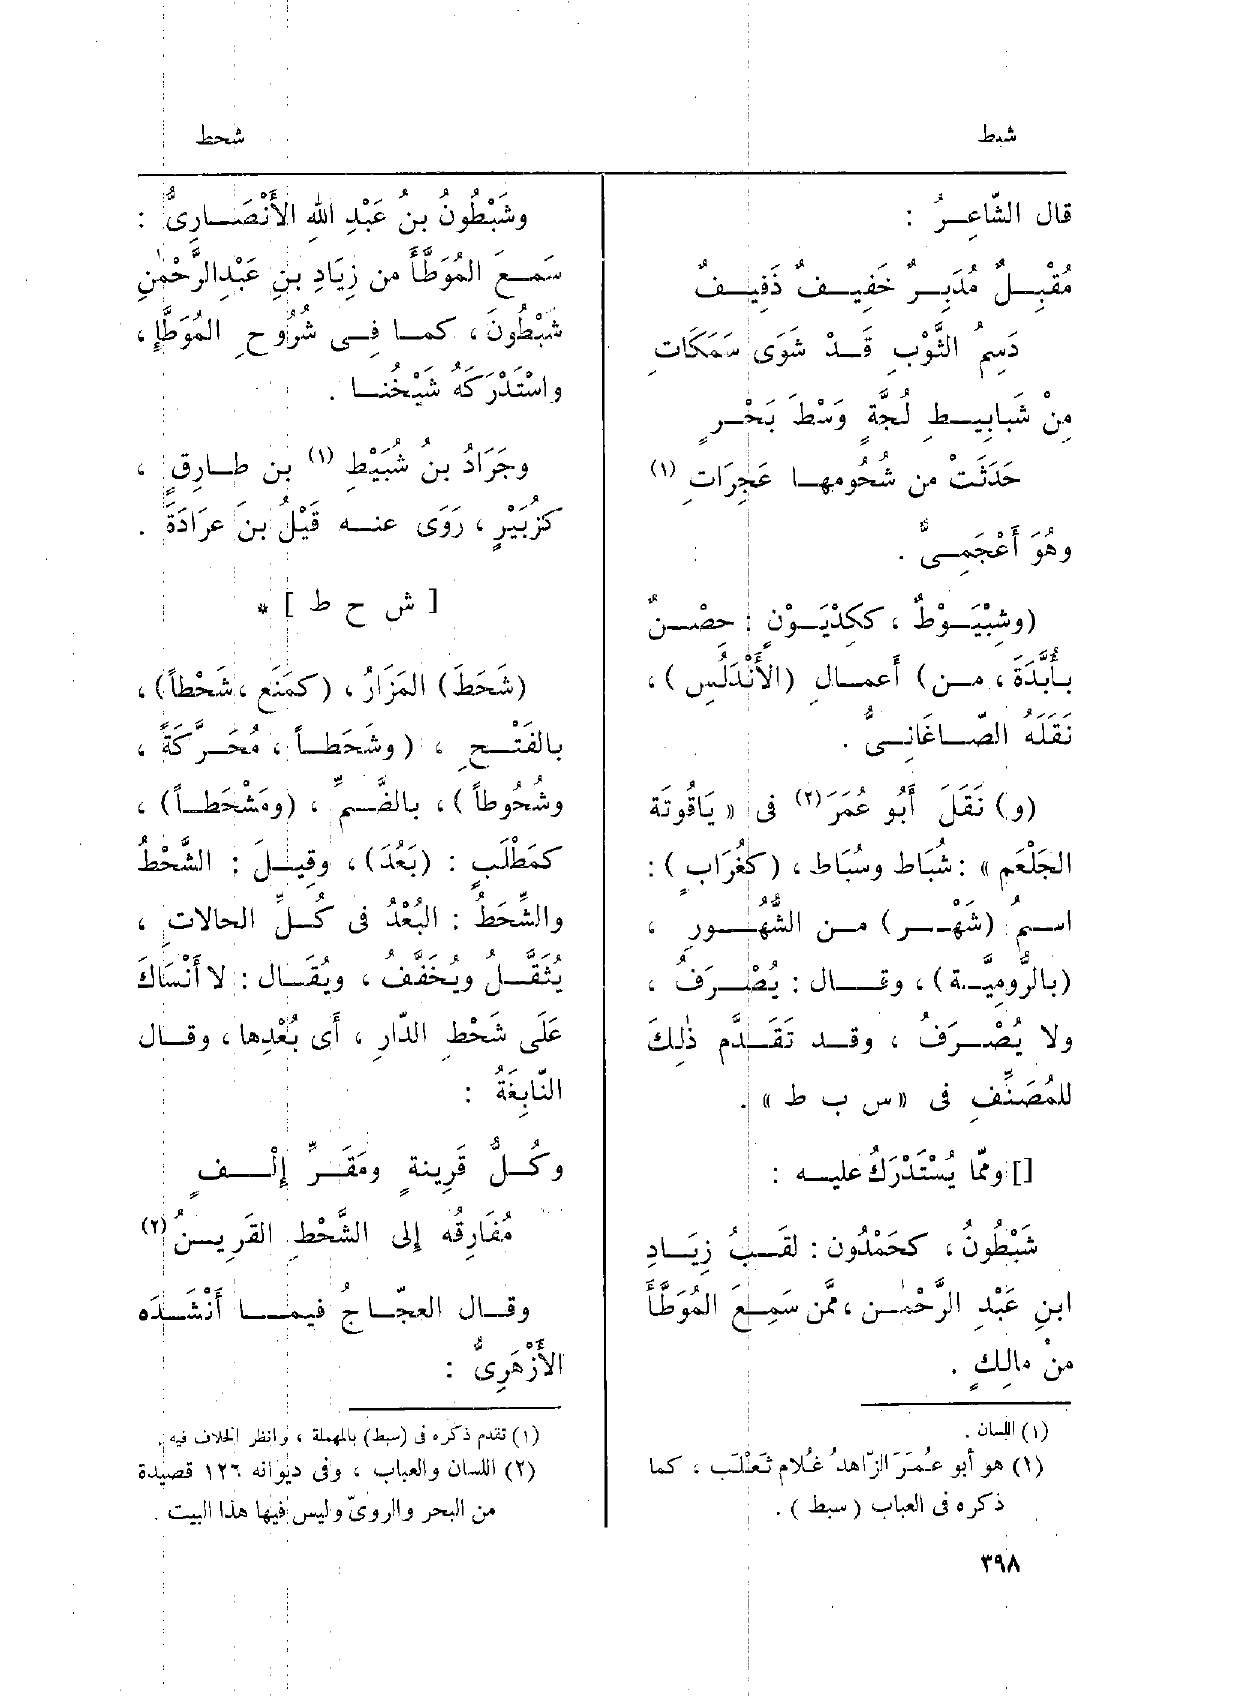 شبط
شحط
قال الشّاعِرُ :
مُقْبِلٌ مُدْبِرٌ خَفِيفٌ ذَفِيفٌ
دَسِمُ الثَّوْبِ قَدْ شَوَى سَمَكَاتِ
مِنْ شَبابِيطِ لُجَّةٍ وَسْطَ بَحْرٍ
حَدَثَتْ من شُحُومِها عَجِرَاتِ (١)
وهُوَ أَعْجَمِىٌّ .
(وشَبْيَوْطٌ ، ككِدْيَوْنٍ : حِصْنٌ
بأُبَّدَةَ ، من) أَعمالِ (الأَنْدَلُسِ) ،
نَقَلَهُ الصّاغَانِىُّ .
(و) نَقَلَ أَبُو عُمَرَ (٢) فى « يَاقُوتَة
الجَلْعَمِ » : شُبَاط وسُبَاط ، (كغُرَابٍ) :
اسمُ (شَهْرٍ) من الشُّهُورِ ،
(بالرُّومِيَّة) ، وقال : يُصْرَفُ ،
ولا يُصْرَفُ ، وقد تَقَدَّم ذٰلِكَ
للمُصَنِّفِ فى « س ب ط » .
[] ومّما يُسْتَدْرَكُ عليه :
شَبْطُونُ ، كحَمْدُون : لقَبُ زِيَادِ
ابنِ عَبْدِ الرَّحْمٰن ، ممَّن سَمِعَ المُوَطَّأَ
منْ مالِكٍ .
(١) اللسان .
(١) هو أبو عُمَرَ الزّاهدُ غُلام ثَعْلَب ، كما
ذكره فى العباب ( سبط ) .
٣٩٨
وشَبْطُونُ بنُ عَبْدِ اللهِ الأَنْصَارِىُّ :
سَمِعَ المُوَطَّأَ من زِيَادِ بنِ عَبْدِالرَّحْمٰنِ
شَبْطُونَ ، كما فى شُرُوحِ المُوَطَّإِ ،
واسْتَدْرَكَهُ شَيْخُنا .
وجَرَادُ بنُ شُبَيْطِ (١) بن طارِقٍ ،
كزُبَيْرٍ ، رَوَى عنه قَيْلُ بنَ عرَادَةَ .
[ ش ح ط ] *
(شَحَطَ) المَزَارُ ، (كمَنَعَ ، شَحْطاً) ،
بالفَتْحِ ، (وشَحَطاً ، مُحَرَّكَةً ،
وشُحُوطاً) ، بالضَّمِّ ، (ومَشْحَطاً) ،
كمَطْلَبٍ : (بَعُدَ) ، وقِيلَ : الشَّحْطُ
والشَّحَطُ : البُعْدُ فى كُلِّ الحالاتِ ،
يُثَقَّلُ ويُخَفَّفُ ، ويُقَال : لا أَنْسَاكَ
عَلَى شَحْطِ الدّارِ ، أَى بُعْدِها ، وقال
النّابِغَةُ :
وكُلُّ قَرِينةٍ ومَقَرِّ إِلْفٍ
مُفَارِقُه إِلى الشَّحْطِ القَرِينُ (٢)
وقال العجّاجُ فيما أَنْشَدَه
الأَزْهَرِىُّ :
(١) تقدم ذكره فى (سبط) بالمهملة ، وانظر الخلاف فيه .
(٢) اللسان والعباب ، وفى ديوانه ١٢٦ قصيدة
من البحر والروىّ وليس فيها هذا البيت .